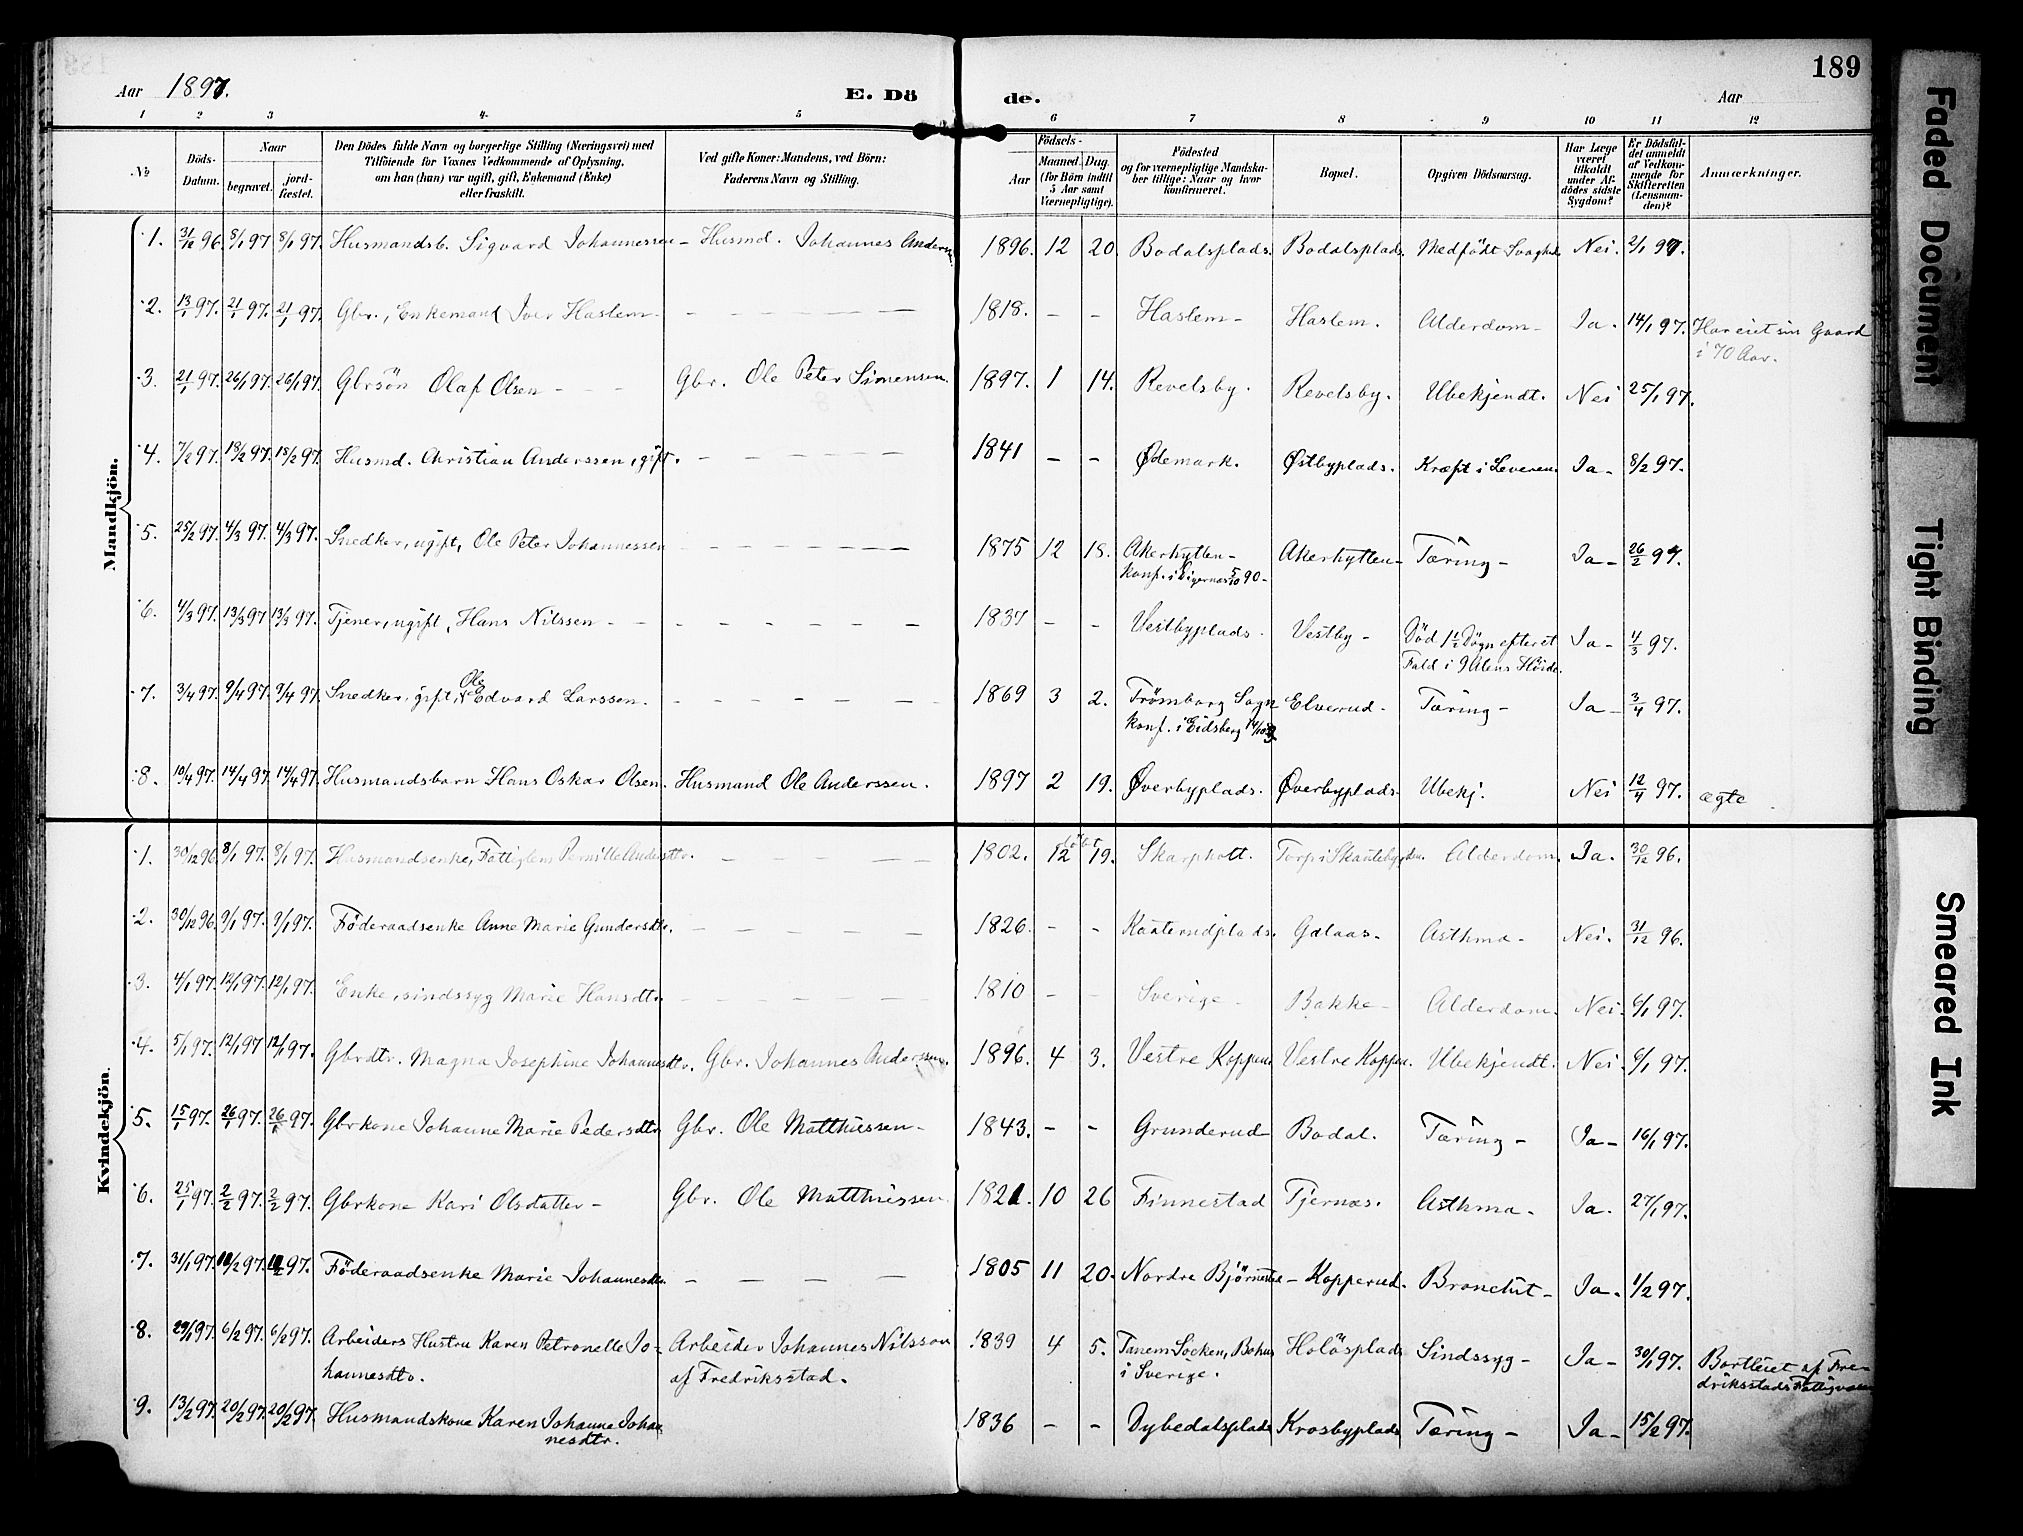 189
Aar 1897.
E. Dö
de.
Aar
1 2 3 4. 5 6 7 8 9 10 11 12
№
Döds-Datum.
Naar
begravet.
jord-fæstet.
Den Dödes fulde Navn og borgerlige Stilling (Næringsvei) med
Tilföiende for Voxnes Vedkommende af Oplysning,
om han (hun) var ugift, gift, Enkemand (Enke)
eller fraskilt.
Ved gifte Koner: Mandens, ved Börn:
Faderens Navn og Stilling.
Födsels-
Aar
Maaned. Dag.
(for Börn indtil
5 Aar samt
Værnepligtige).
Födested
og for værnepligtige Mandska-
ber tillige: Naar og hvor
konfirmeret.
Bopæl.
Opgiven Dödsaarsag.
Har Læge
været
tilkaldt
under Af-
dödes sidste
Sygdom?
Er Dödsfal-
det anmeldt
af Vedkom-
mende for
Skifteretten
(Lensman-
den)?
Anmærkninger.
Mandkjön.
1. 31/12 96 8/1 97 8/1 97. Husmandsb. Sigvard Johannessen – Husmd. Johannes Anders 1896. 12 20. Bodalsplads. Bodalsplads. Medfödt Svaghed Nei. 2/1 97.
2. 13/1 97. 21/1 97. 21/1 97. Gbr., Enkemand Iver Haslem – – – – – 1818. – – Haslem – Haslem. Alderdom – Ja. 14/1 97. Har eiet sin Gaard
i 70 Aar.
3. 21/1 97. 26/1 97. 26/1 97. Gbrsön Olaf Olsen – – – Gbr. Ole Peter Simensen. 1897. 1 14. Revelsby. Revelsby. Ubekjendt. Nei 25/1 97.
4. 7/2 97. 18/2 97. 18/2 97. Husmd. Christian Anderssen, gift. – – – – 1841 – – Ødemark. Østbyplads. Kræft i Leveren Ja – 8/2 97.
5. 25/2 97. 4/3 97. 4/3 97. Snedker, ugift, Ole Peter Johannessen – – – – 1875 12 18. Akerhytten – Akerhytten – Tæring – Ja – 26/2 97.
konf. i 5/10 90 –
6. 4/3 97. 13/3 97 13/3 97. Tjener, ugift, Hans Nilssen – – – – – – 1837 – – Vestbyplads. Vestby – Död 1½ Dögn efter et Ja – 4/3 97.
Fald i 9 Alens Höide.
7. 3/4 97. 9/4 97. 9/4 97. Snedker, gift, Ole Edvard Larssen. – – – – – 1869 3 2. Trömborg Sogn Elverud – Tæring – Ja – 3/4 97.
konf. i Eidsberg
8. 10/4 97. 14/4 97. 14/4 97. Husmandsbarn Hans Oskar Olsen. Husmand Ole Anderssen. 1897 2 19. Øverbyplads. Øverbyplads. Ubekj. Nei 12/4 97. ægte
Kvindekjön.
1. 30/12 96. 8/1 97. 8/1 97. Husmandsenke, Fattiglem Pernille Andersdtr. – – – – 1802. döbt 12 19. Skarpholt. Torp i Skantebygden. Alderdom. Ja. 30/12 96.
2. 30/12 96. 9/1 97. 9/1 97. Föderaadsenke Anne Marie Gundersdtr. – – – – – 1826. – – Kaaterudplads. Galaas. Asthma – Nei. 31/12 96.
3. 4/1 97. 12/1 97. 12/1 97. Enke, sindssyg Marie Hansdtr. – – – – – 1810 – – Sverige – Bakke – Alderdom. Nei. 6/1 97.
4. 5/1 97. 12/1 97 12/1 97. Gbrdtr. Magna Josephine Johannesdtr. Gbr. Johannes Anderssen. 1896. 4 3. Vestre Koppen Vestre Koppen. Ubekjendt. Nei. 6/1 97.
5. 15/1 97. 26/1 97. 26/1 97. Gbrkone Johanne Marie Pedersdtr. Gbr. Ole Matthiessen – 1843. – – Grunderud Bodal. Tæring – Ja – 16/1 97.
6. 25/1 97. 2/2 97. 2/2 97. Gbrkone Kari Olsdatter – Gbr. Ole Matthiessen. 1821. 10 26 Finnestad Tjernæs. Asthma. Ja. 27/1 97.
7. 31/1 97. 11/2 97. 11/2 97. Föderaadsenke Marie Johannesdtr. – – – – 1805 11 20. Nordre Bjørnestad – Kopperud. Bronchit – Ja. 1/2 97.
8. 29/1 97. 6/2 97. 6/2 97. Arbeiders Hustru Karen Petronelle Jo- Arbeider Johannes Nilsson 1839 4 5. Tanem Socken, Bohus Holösplads Sindssyg – Ja – 30/1 97. Bortleiet af Fre-
hannesdtr. af Fredriksstad. i Sverige. driksstads Fattigvæsen
9. 13/2 97. 20/2 97. 20/2 97. Husmandskone Karen Johanne Johan- 1836 – – Dybedalsplads Krosbyplads Tæring – Ja – 15/2 97.
nesdtr.
Faded Document
Tight Binding
Smeared Ink